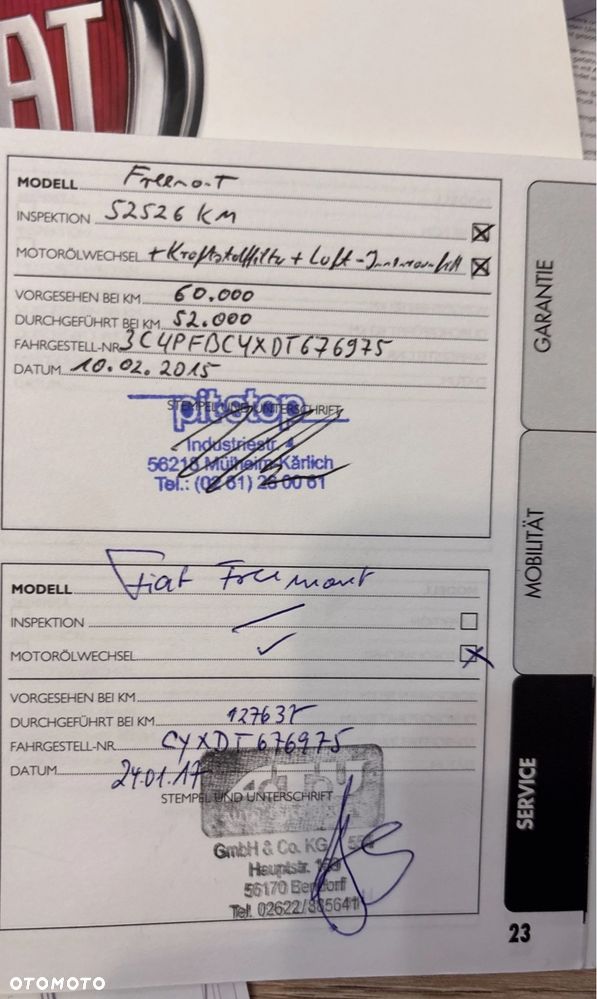 FIAT
MODELL Freemont
INSPEKTION 52526 KM
MOTORÖLWECHSEL + Kraftstofffilter + Luft-
VORGESEHEN BEI KM 60.000
DURCHGEFÜHRT BEI KM 52.000
FAHRGESTELL-NR. 3C4PFBCYXDT676975
DATUM 10.02.2015
STEMPEL UND UNTERSCHRIFT
pitstop
Industriestr. 4
56218 Mülheim-Kärlich
Tel.: (02 61) 26 00 61
MODELL Fiat Freemont
INSPEKTION
MOTORÖLWECHSEL
VORGESEHEN BEI KM
DURCHGEFÜHRT BEI KM
FAHRGESTELL-NR. CYXDT676975
DATUM 24.01.17
STEMPEL UND UNTERSCHRIFT
GmbH & Co. KG
Hauptstr.
56170 Bendorf
Tel. 02622/885641
GARANTIE
MOBILITÄT
SERVICE
23
OTOMOTO